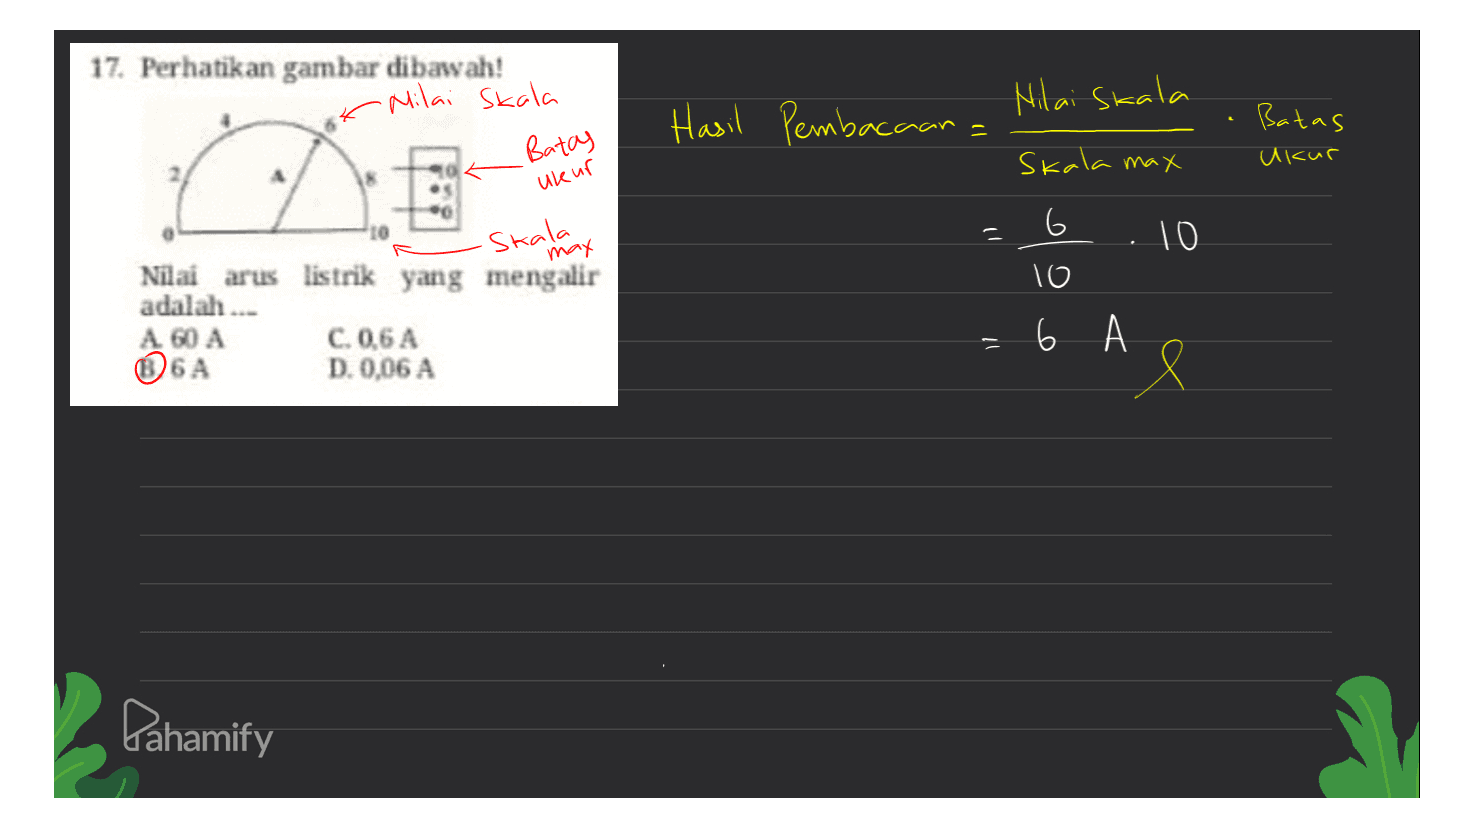 17. Perhatikan gambar dibawah!
Nilai Skala
4
6
Batas
ukur
2
A
8
10
5
0
0
10
Skala
max
Nilai arus listrik yang mengalir
adalah ....
A. 60 A
C. 0,6 A
B. 6 A
D. 0,06 A
Hasil Pembacaan = Nilai Skala / Skala max . Batas Ukur
= 6 / 10 . 10
= 6 A
Pahamify